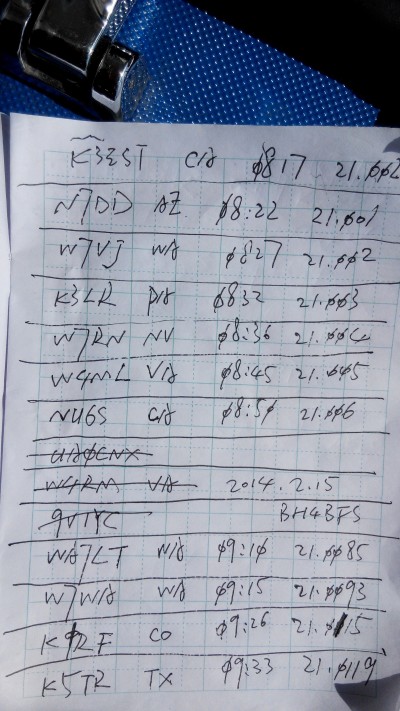 K3EST CA Ø817 21.ØØ2
N7DD AZ Ø8:22 21.ØØ1
W7VJ WA Ø8:27 21.ØØ2
K3LR PA Ø832 21.ØØ3
W7RN NV Ø8:36 21.ØØ4
W4ML VA Ø8:45 21.ØØ5
NU6S CA Ø8:5Ø 21.ØØ6
UAØCNX
W4RM VA 2014.2.15
9V1YC BH4BFS
WA7LT WA Ø9:1Ø 21.ØØ85
W7WA WA Ø9:15 21.ØØ93
KØRF CO Ø9:26 21.Ø115
K5TR TX Ø9:33 21.Ø119